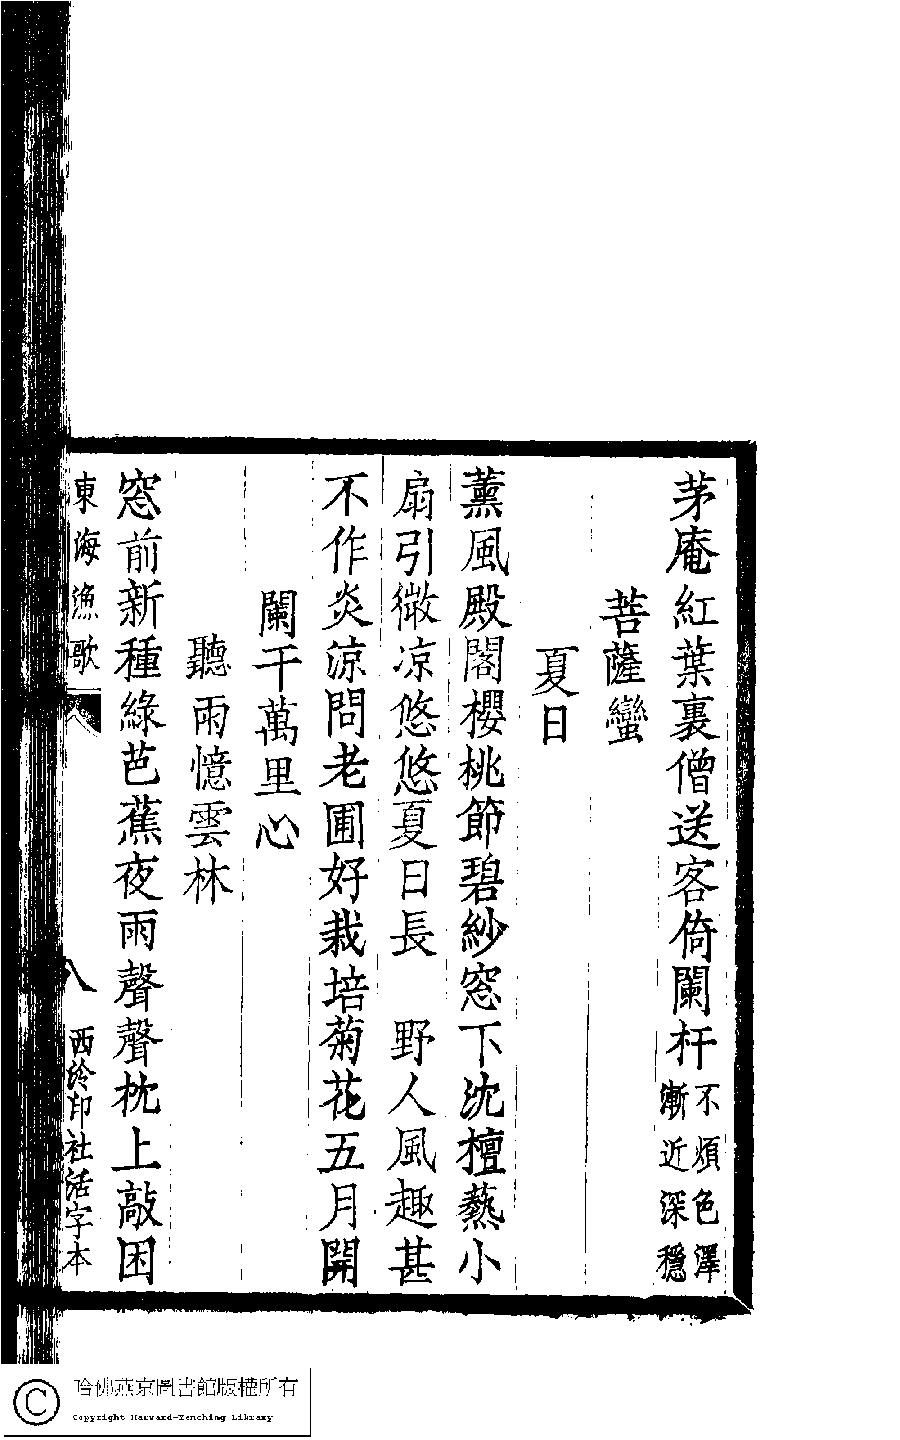 茅庵紅葉裏僧送客倚闌杆不煩色澤漸近深穩
菩薩蠻
夏日
薰風殿閣櫻桃節碧紗窓下沈檀爇小
扇引微凉悠悠夏日長　野人風趣甚
不作炎涼問老圃好栽培菊花五月開
闌干萬里心
聽雨憶雲林
窓前新種綠芭蕉夜雨聲聲枕上敲困
東海漁歌
八
西泠印社活字本
哈佛燕京圖書館版權所有
Copyright Harvard-Yenching Library